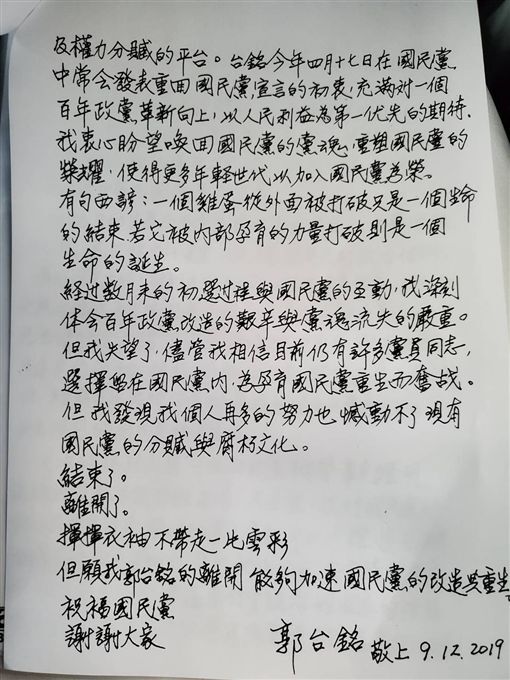 及權力分贓的平台。台銘今年四月十七日在國民黨
中常會發表重回國民黨宣言的初衷,充滿對一個
百年政黨革新向上,以人民利益為第一优先的期待.
我衷心盼望喚回國民黨的黨魂,重塑國民黨的
榮耀,使得更多年輕世代以加入國民黨為榮。
有句西諺:一個雞蛋從外面被打破只是一個生命
的結束.若它被內部孕育的力量打破則是一個
生命的誕生。
經过数月來的初選过程與國民黨的互動,我深刻
体会百年政黨改造的艱辛與黨魂流失的嚴重。
但我失望了,儘管我相信目前仍有許多黨員同志,
選擇留在國民黨內,為孕育國民黨重生而奮战。
但我發現我個人再多的努力也憾動不了現有
國民黨的分贓與腐朽文化。
結束了。
離開了。
揮揮衣袖不帶走一片雲彩
但願我郭台銘的離開能夠加速國民黨的改造與重生。
祝福國民黨
謝謝大家
郭台銘 敬上 9.12.2019